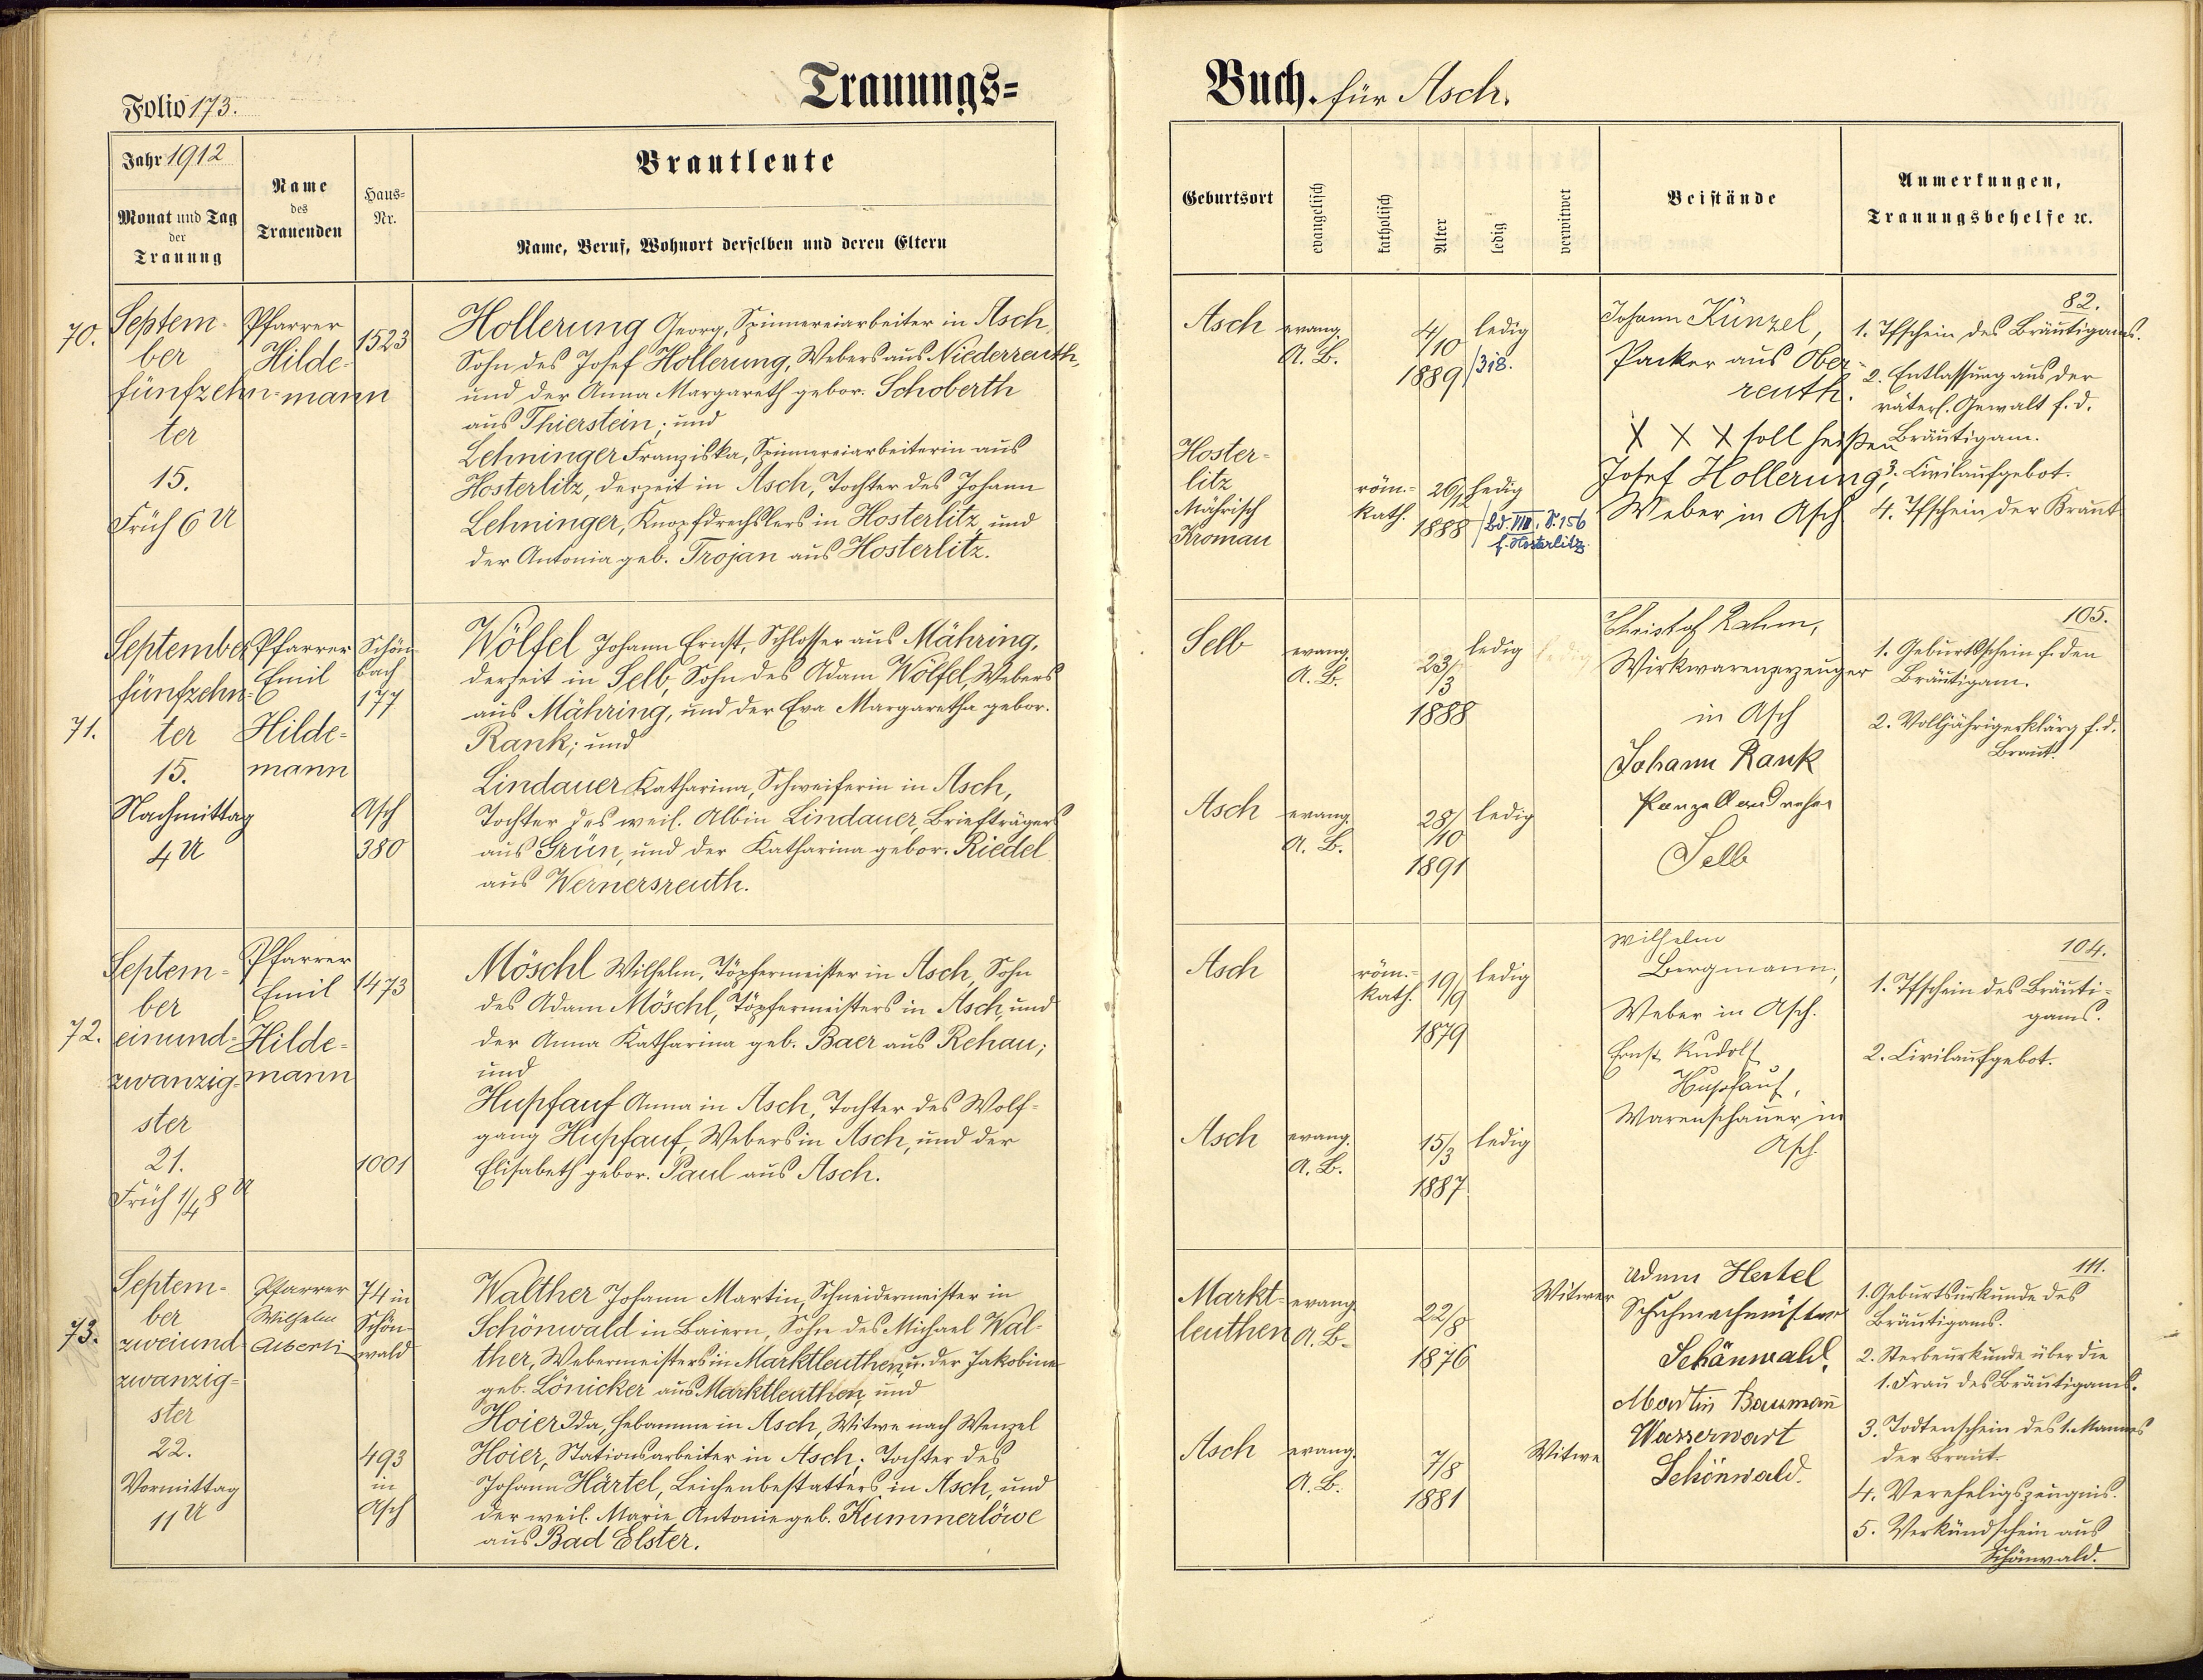 Folio 173.
Trauungs=
Jahr 1912
Monat und Tag
der
Trauung
Name
des
Trauenden
Haus=
Nr.
Brautleute
Name, Beruf, Wohnort derselben und deren Eltern
70.
Septem-
ber
fünfzehn-
ter
15.
Früh 6 U
Pfarrer
Hilde-
mann
1523
Hollerung Georg, Spinnereiarbeiter in Asch,
Sohn des Josef Hollerung, Webers aus Niederreuth,
und der Anna Margareth gebor. Schoberth
aus Thierstein; und
Lehninger Franziska, Spinnereiarbeiterin aus
Hosterlitz, derzeit in Asch, Tochter des Johann
Lehninger, Knopfdrechslers in Hosterlitz, und
der Antonia geb. Trojan aus Hosterlitz.
71.
September
fünfzehn-
ter
15.
Nachmittag
4 U
Pfarrer
Emil
Hilde-
mann
Schön-
bach
177
Asch
380
Wölfel Johann Ernst, Schlosser aus Mähring,
derzeit in Selb, Sohn des Adam Wölfel, Webers
aus Mähring, und der Eva Margaretha gebor.
Rank; und
Lindauer Katharina, Schweiferin in Asch,
Tochter des weil. Albin Lindauer, Briefträgers
aus Grün, und der Katharina gebor. Riedel
aus Wernersreuth.
72.
Septem-
ber
einund-
zwanzig-
ster
21.
Früh 1/4 8 U
Pfarrer
Emil
Hilde-
mann
1473
1001
Möschl Wilhelm, Töpfermeister in Asch, Sohn
des Adam Möschl, Töpfermeisters in Asch, und
der Anna Katharina geb. Baer aus Rehau;
und
Hupfauf Anna in Asch, Tochter des Wolf-
gang Hupfauf, Webers in Asch, und der
Elisabeth gebor. Paul aus Asch.
73.
Septem-
ber
zweiund-
zwanzig-
ster
22.
Vormittag
11 U
Pfarrer
Wilhelm
Alberti
74 in
Schön-
wald
493
in
Asch
Walther Johann Martin, Schneidermeister in
Schönwald in Baiern, Sohn des Michael Wal-
ther, Webermeisters in Marktleuthen, u. der Jakobine
geb. Lönicker aus Marktleuthen, und
Hoier Ida, Hebamme in Asch, Witwe nach Wenzel
Hoier, Stationsarbeiter in Asch; Tochter des
Johann Härtel, Leichenbestatters in Asch, und
der weil. Marie Antonie geb. Kummerlöwe
aus Bad Elster.
Buch. für Asch.
Geburtsort
evangelisch
katholisch
Alter
ledig
verwitwet
Beistände
Anmerkungen,
Trauungsbehelfe ec.
Asch
evang.
A. B.
4/10
1889
ledig
/318.
Hoster-
litz
Mährisch
Kromau
röm.-
kath.
26/12
1888
ledig
Bd. VIII, S. 156
f. Hosterlitz
Johann Künzel,
Packer aus Ober-
reuth.
X X X soll heißen
Josef Hollerung,
Weber in Asch
82.
1. Tfschein des Bräutigams.
2. Entlassung aus der
väterl. Gewalt f. d.
Bräutigam.
3. Civilaufgebot.
4. Tfschein der Braut
Selb
evang.
A. B.
23/
/3
1888
ledig
ledig
Asch
evang.
A. B.
28/
/10
1891
ledig
Christof Rahm,
Wirkwarenerzeuger
in Asch
Johann Rank
Selb
105.
1. Geburtsschein f. den
Bräutigam.
2. Volljährigerklärg f. d.
Braut.
Asch
röm.-
kath.
19/9
1879
ledig
Asch
evang.
A. B.
15/3
1887
ledig
Wilhelm
Bergmann,
Weber in Asch.
Ernst Rudolf
Hupfauf,
Warenschauer in
Asch.
104.
1. Tfschein des Bräuti-
gams.
2. Civilaufgebot.
Markt-
leuthen
evang.
A. B.
22/8
1876
Witwer
Asch
evang.
A. B.
7/8
1881
Witwe
Adam Hertel
Schuhmachmeister
Schönwald.
Martin Baumann
Wasserwart
Schönwald.
111.
1. Geburtsurkunde des
Bräutigams.
2. Sterbeurkunde über die
1. Frau des Bräutigams.
3. Todtenschein des 1. Mannes
der Braut.
4. Verehelichgszeugnis.
5. Verkündschein aus
Schönwald.